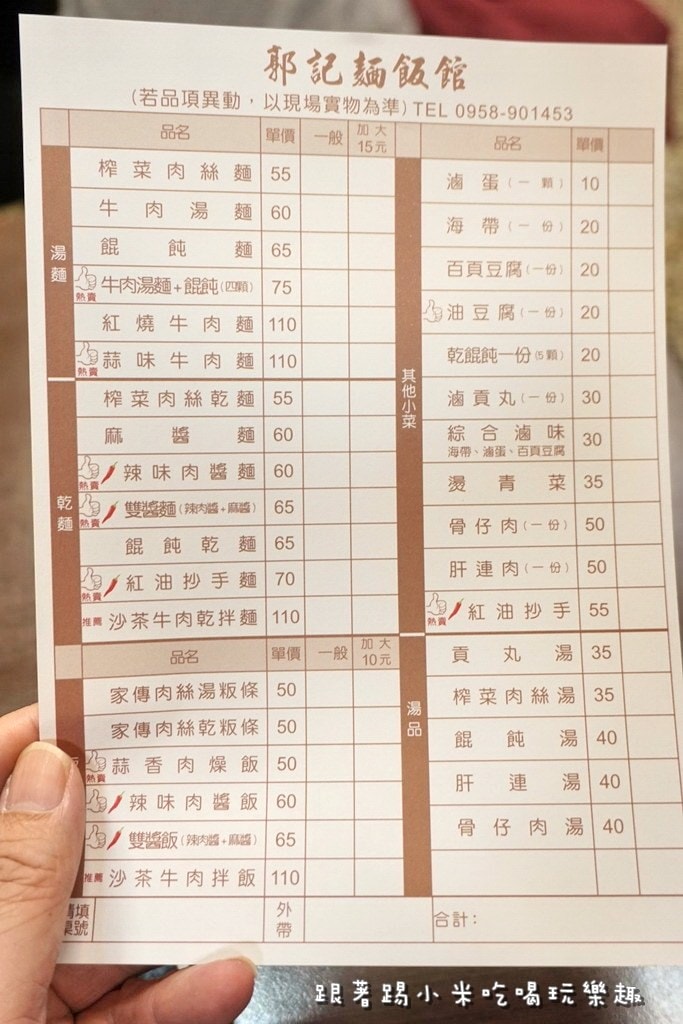 郭記麵飯館
(若品項異動，以現場實物為準) TEL 0958-901453
品名 單價 一般 加大15元
湯麵
榨菜肉絲麵 55
牛肉湯麵 60
餛飩麵 65
熱賣 牛肉湯麵+餛飩(四顆) 75
紅燒牛肉麵 110
熱賣 蒜味牛肉麵 110
乾麵
榨菜肉絲乾麵 55
麻醬麵 60
熱賣 辣味肉醬麵 60
熱賣 雙醬麵(辣肉醬+麻醬) 65
餛飩乾麵 65
熱賣 紅油抄手麵 70
推薦 沙茶牛肉乾拌麵 110
品名 單價 一般 加大10元
家傳肉絲湯粄條 50
家傳肉絲乾粄條 50
熱賣 蒜香肉燥飯 50
辣味肉醬飯 60
雙醬飯(辣肉醬+麻醬) 65
推薦 沙茶牛肉拌飯 110
填
號
外帶
品名 單價
其他小菜
滷蛋(一顆) 10
海帶(一份) 20
百頁豆腐(一份) 20
油豆腐(一份) 20
乾餛飩一份(5顆) 20
滷貢丸(一份) 30
綜合滷味 30
海帶、滷蛋、百頁豆腐
燙青菜 35
骨仔肉(一份) 50
肝連肉(一份) 50
熱賣 紅油抄手 55
湯品
貢丸湯 35
榨菜肉絲湯 35
餛飩湯 40
肝連湯 40
骨仔肉湯 40
合計：
跟著踢小米吃喝玩樂趣